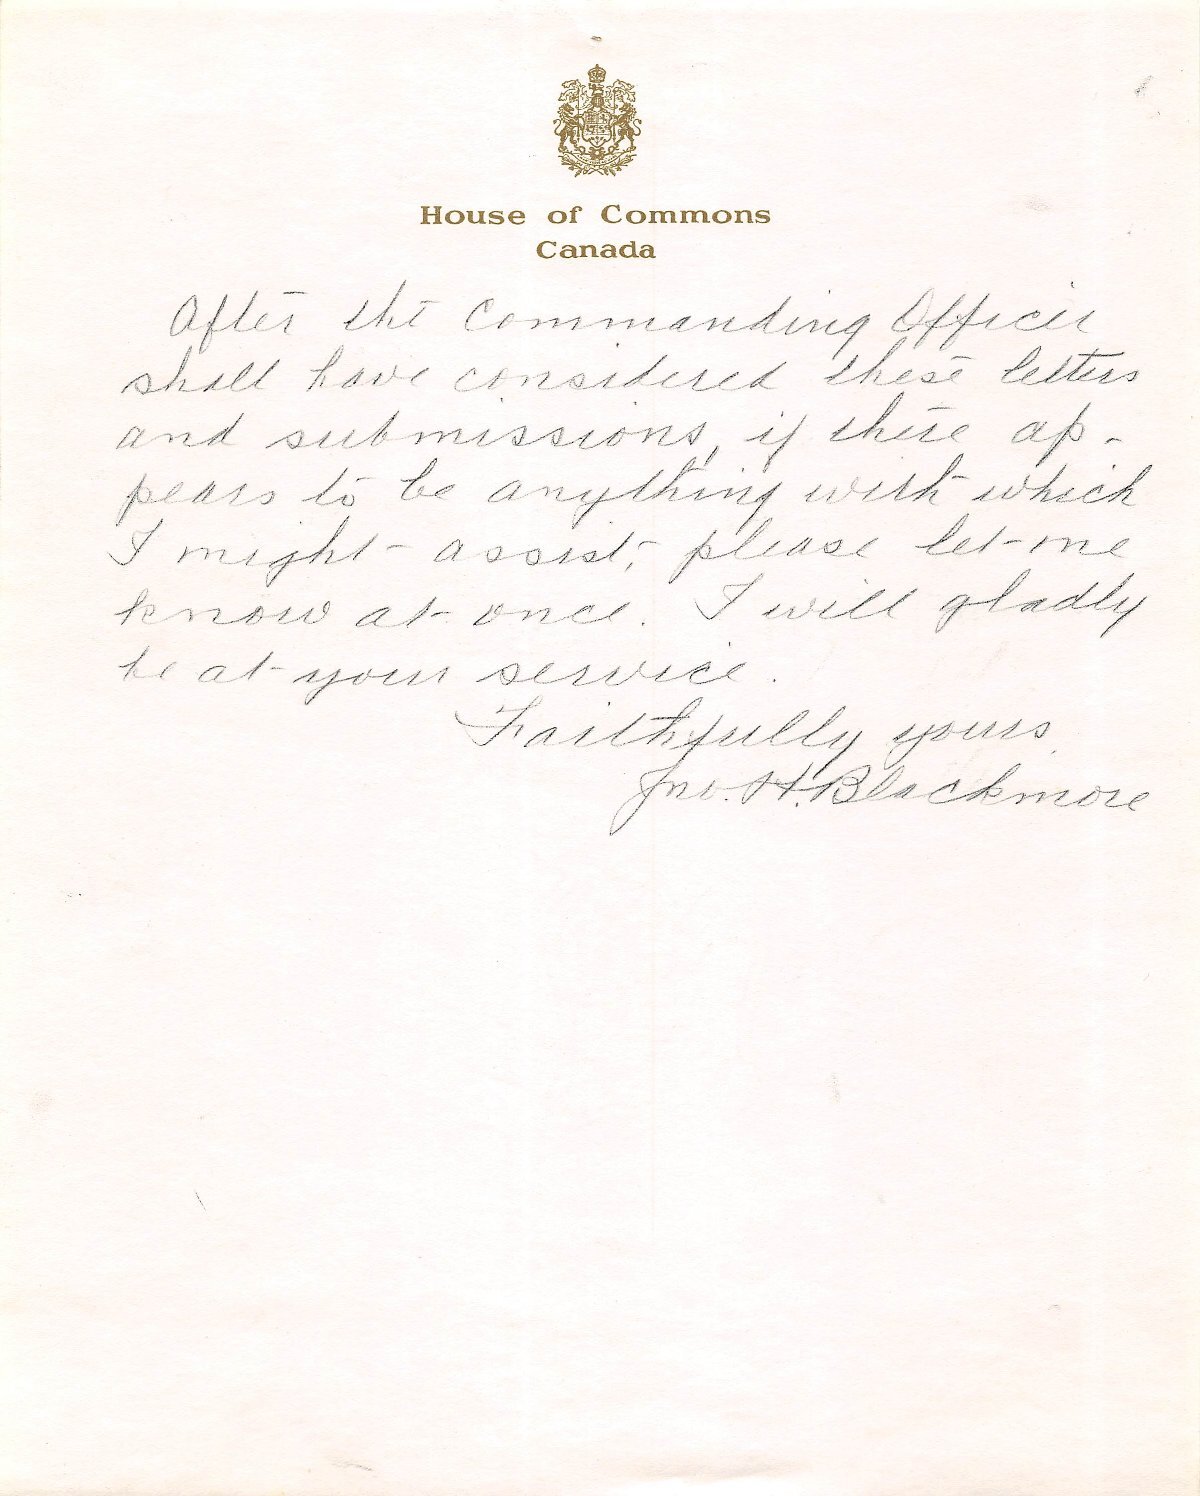 House of Commons
Canada
After the Commanding Officer
shall have considered these letters
and submissions, if there ap-
pears to be anything with which
I might assist, please let me
know at once. I will gladly
be at your service.
Faithfully yours
Jno. H. Blackmore